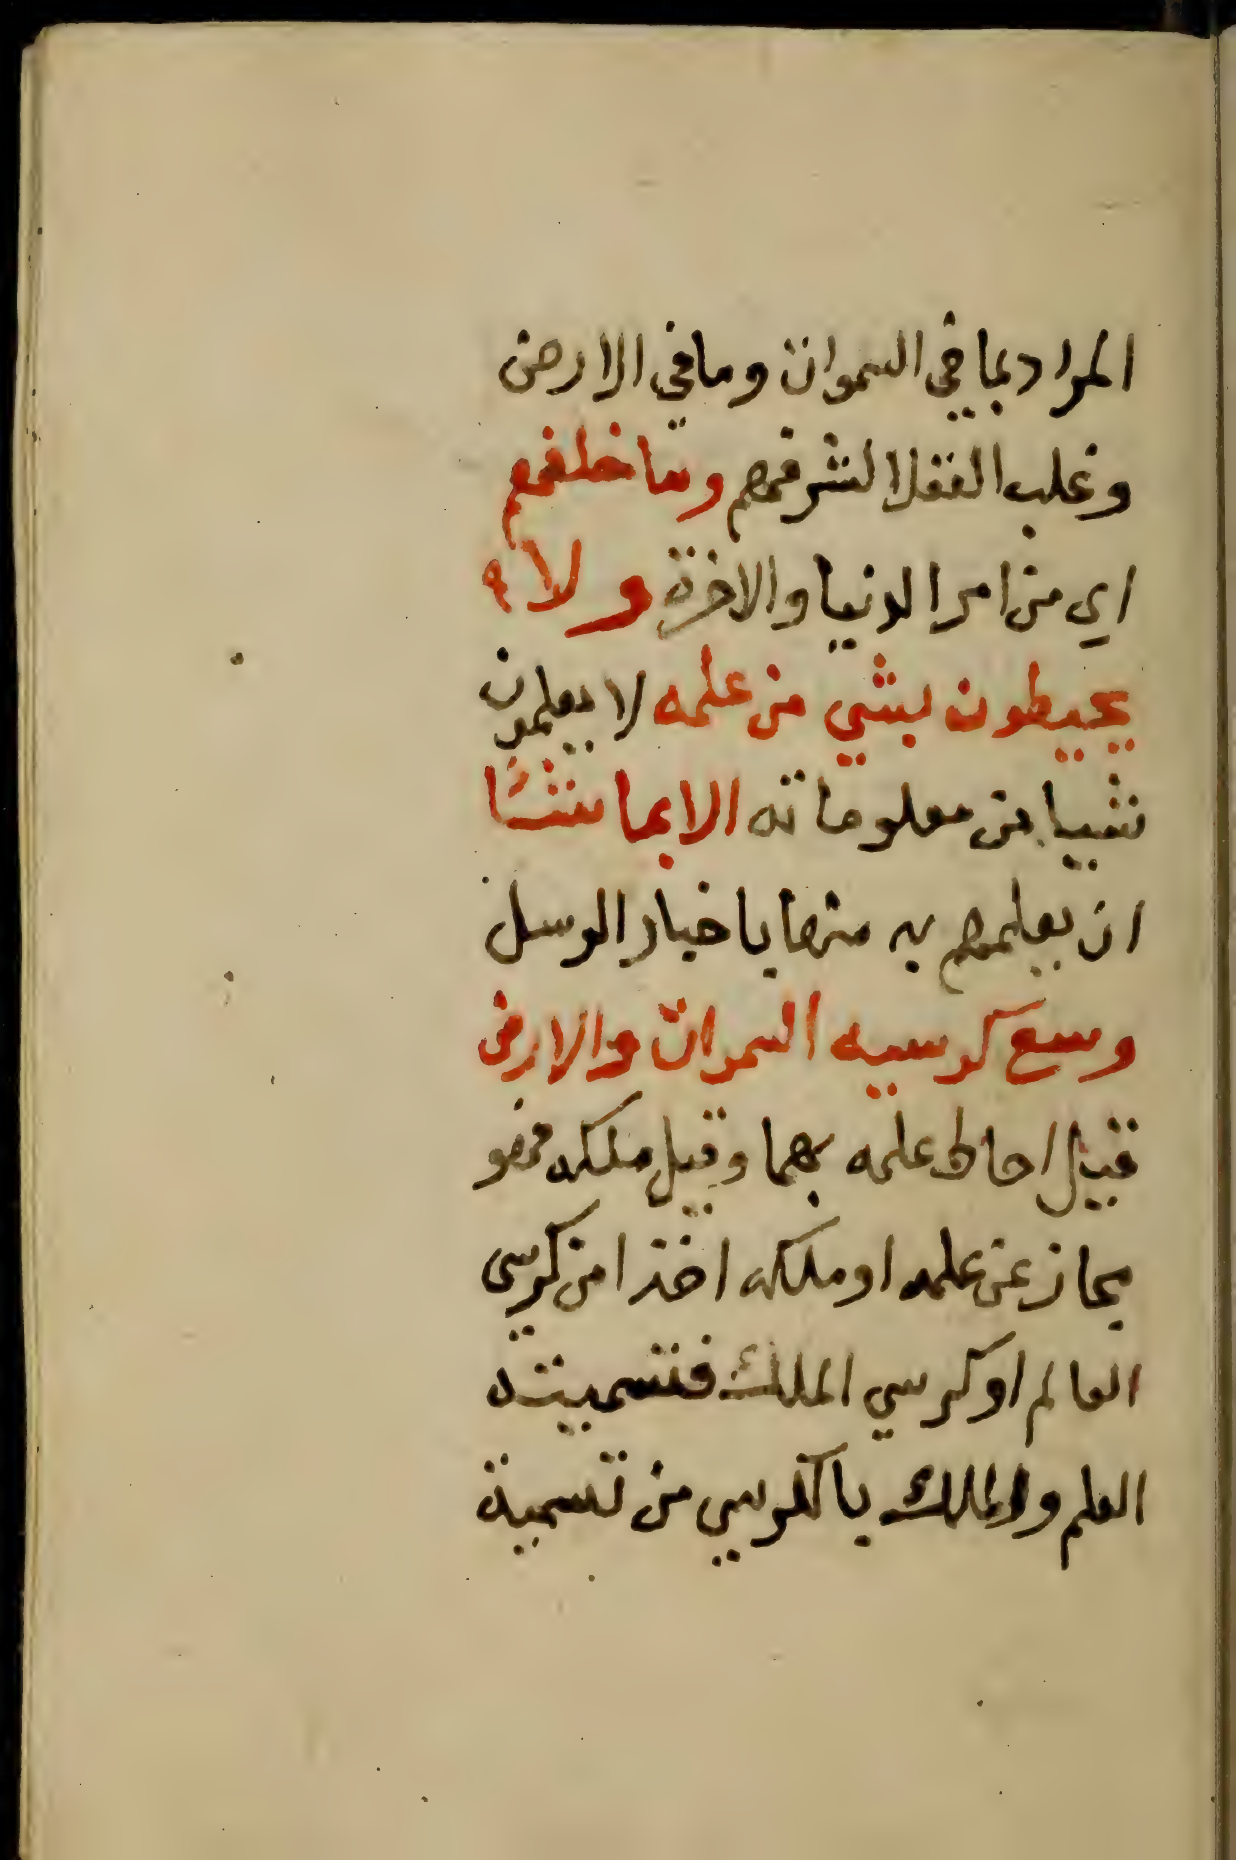 المراد بما في السموات وما في الارض
وغلب العقلا لشرفهم وما خلفهم
اي من امر الدنيا والاخرة ولا
يحيطون بشي من علمه لا يعلمون
شييا من معلوماته الا بما شآ
ان يعلمهم به منها باخبار الرسل
وسع كرسيه السموات والارض
قيل احاط علمه بهما وقيل ملكه فهو
مجاز عن علمه او ملكه اخذا من كرسي
العالم او كرسي الملك فتسميته
العلم والملك بالكرسي من تسمية